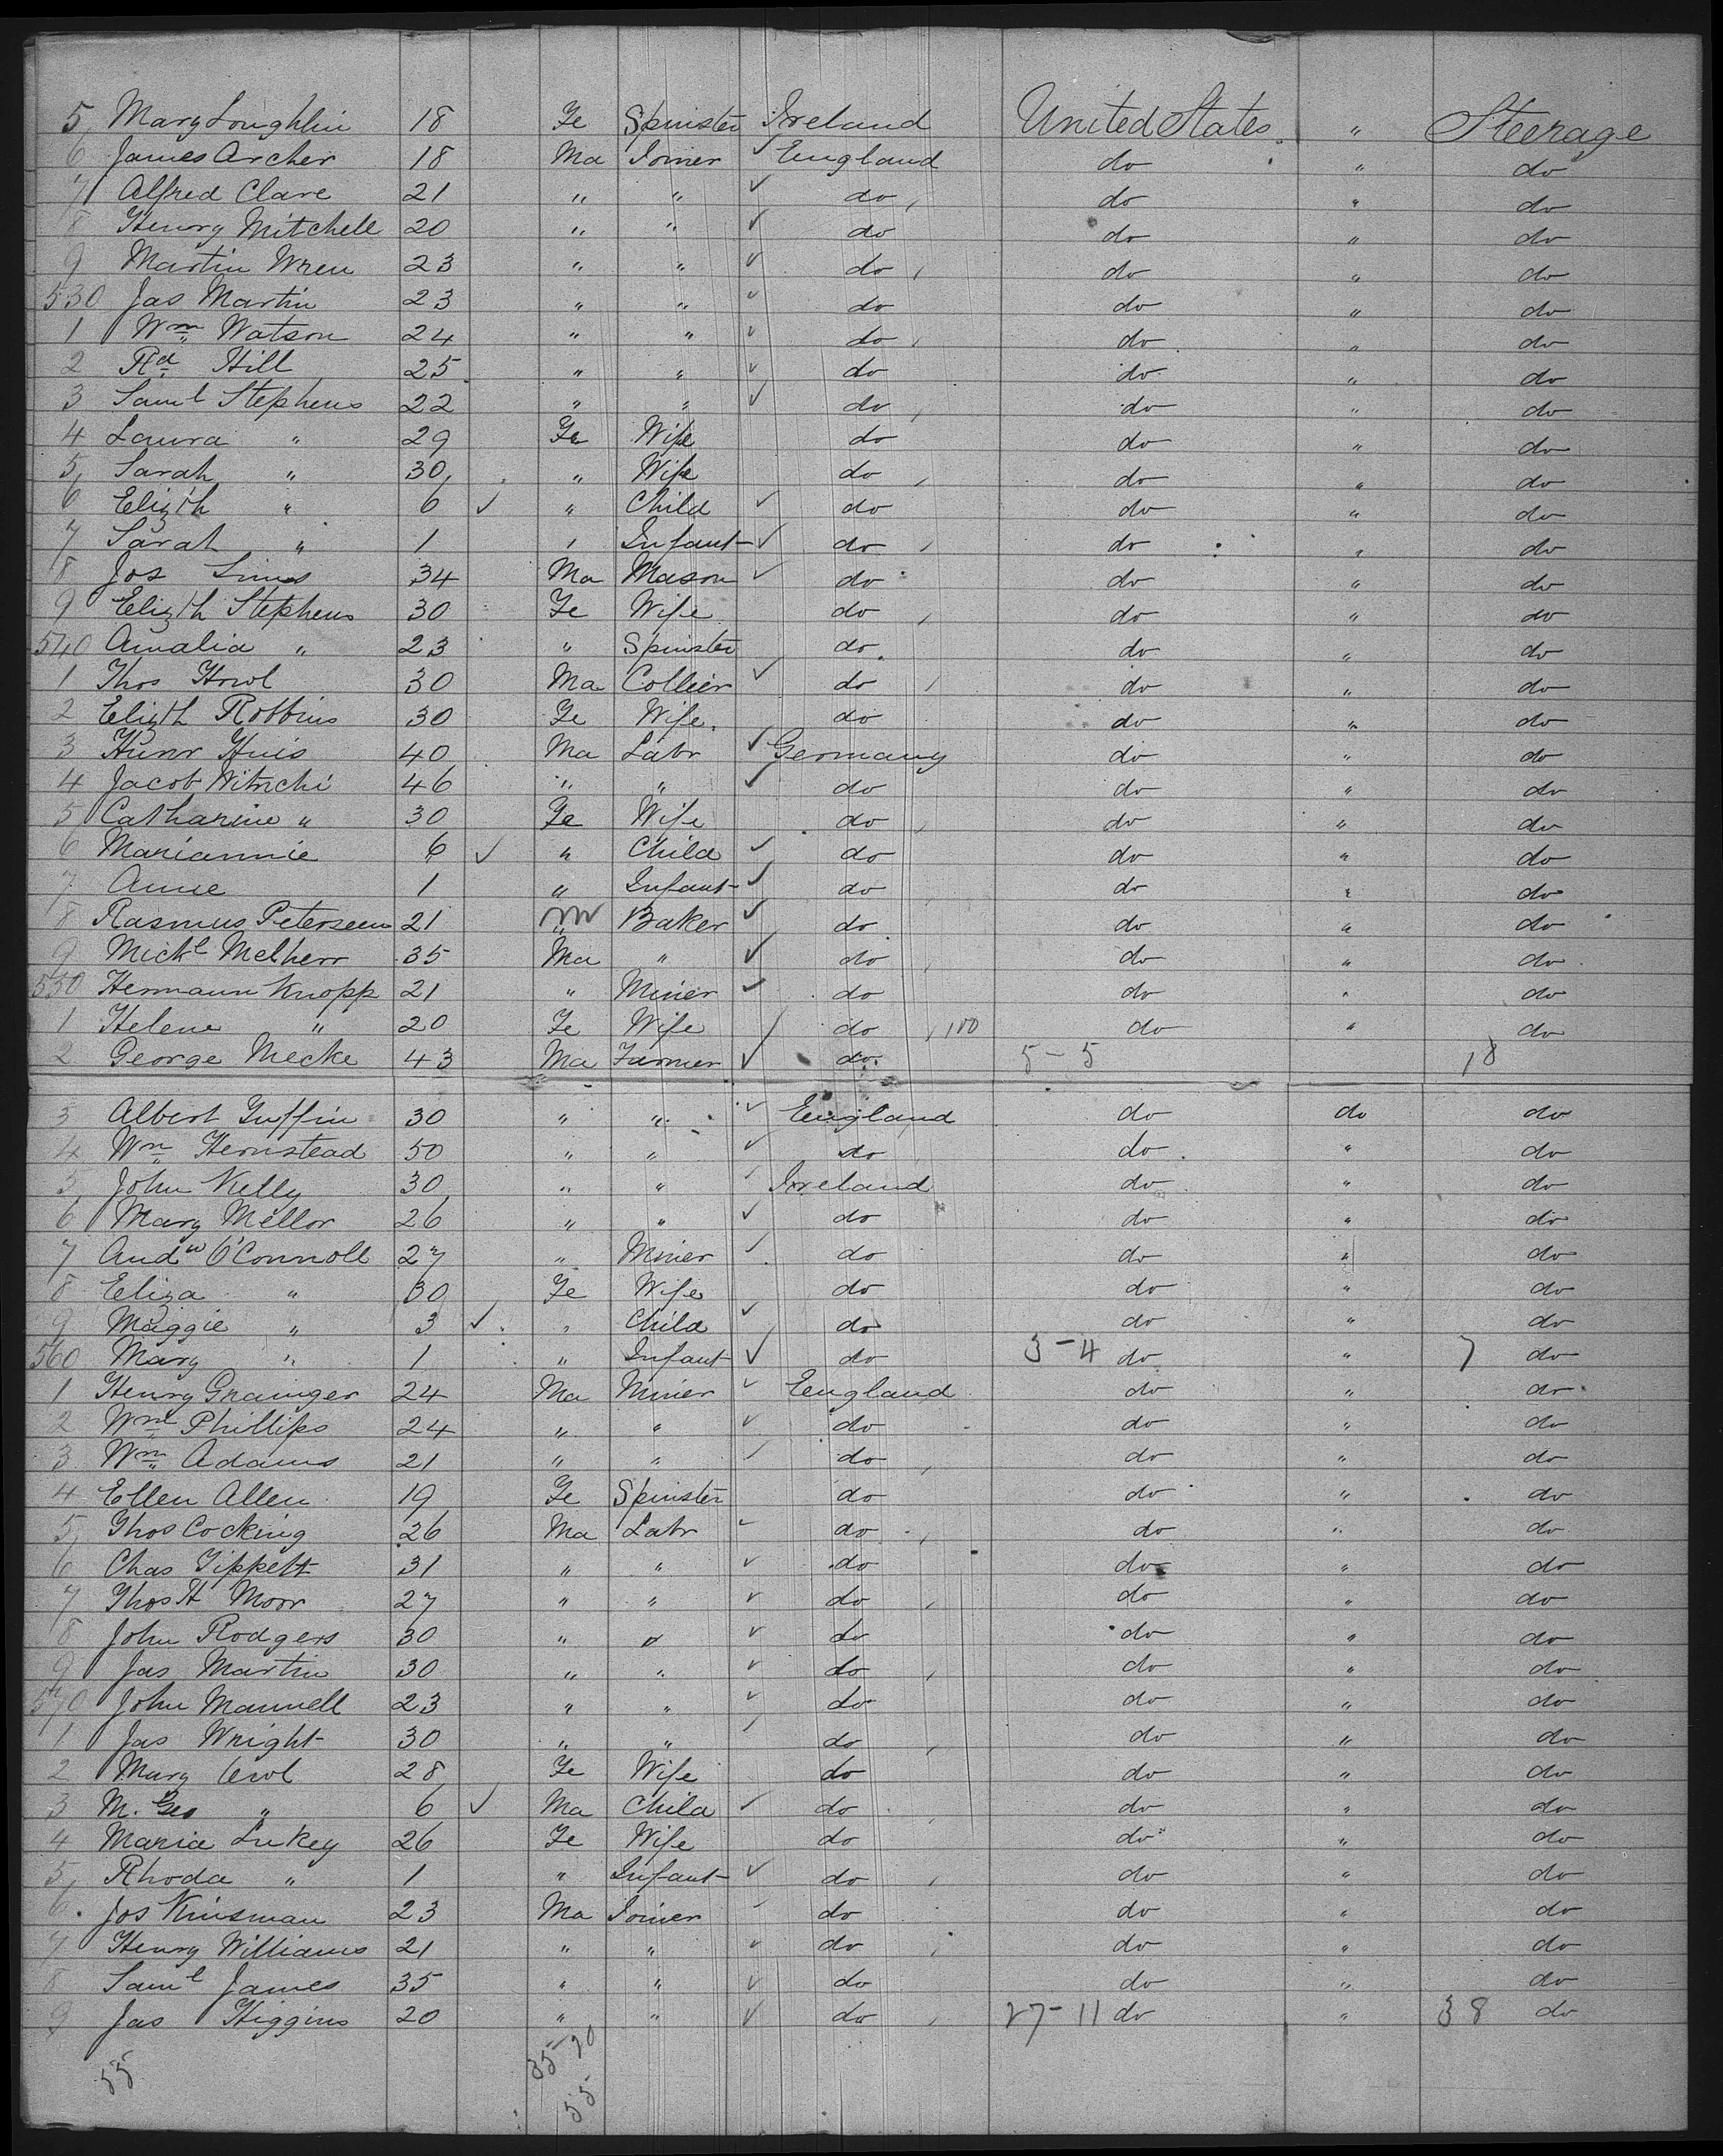 5 Mary Loughlin 18 Fe Spinster Ireland United States " Steerage
6 James Archer 18 Ma Joiner ✓ England do " do
7 Alfred Clare 21 " " ✓ do do " do
8 Henry Mitchell 20 " " ✓ do do " do
9 Martin Wren 23 " " ✓ do do " do
530 Jas Martin 23 " " ✓ do do " do
1 Wm Watson 24 " " ✓ do do " do
2 Rd Hill 25 " " ✓ do do " do
3 Saml Stephens 22 " " ✓ do do " do
4 Laura " 29 Fe Wife do do " do
5 Sarah " 30 " Wife do do " do
6 Elizth " 6 ✓ " Child ✓ do do " do
7 Sarah " 1 " Infant ✓ do do " do
8 Jos Sims 34 Ma Mason ✓ do do " do
9 Elizth Stephens 30 Fe Wife do do " do
540 Amalia " 23 " Spinster do do " do
1 Thos Howl 30 Ma Collier ✓ do do " do
2 Elizth Robbins 30 Fe Wife do do " do
3 40 Ma Labr ✓ Germany do " do
4 Jacob 46 " " ✓ do do " do
5 Catharine " 30 Fe Wife do do " do
6 Mariannie 6 ✓ " Child ✓ do do " do
7 Anne 1 " Infant ✓ do do " do
8 Rasmus Peterseen 21 m Baker ✓ do do " do
9 Mickl Melherr 35 Ma " ✓ do do " do
550 Hermann Knopp 21 " Miner ✓ do do " do
1 Helene " 20 Fe Wife do 100 do " do
2 George Mecke 43 Ma Farmer ✓ do 5-5 18
3 Albert Guffin 30 " " ✓ England do do do
4 Wm Hernstead 50 " " ✓ do do " do
5 John Kelly 30 " " ✓ Ireland do " do
6 Mary Mellor 26 " " ✓ do do " do
7 Andw O'Connoll 27 " Miner ✓ do do " do
8 Eliza " 30 Fe Wife do do " do
9 Maggie " 3 ✓ " Child ✓ do do " do
560 Mary " 1 " Infant ✓ do 3-4 do " 7 do
1 Henry Grainger 24 Ma Miner ✓ England do " do
2 Wm Phillips 24 " " ✓ do do " do
3 Wm Adams 21 " " ✓ do do " do
4 Ellen Allen 19 Fe Spinster do do " do
5 Thos Cocking 26 Ma Labr ✓ do do " do
6 Chas Tippett 31 " " ✓ do do " do
7 Thos H Moor 27 " " ✓ do do " do
8 John Rodgers 30 " " ✓ do do " do
9 Jas Martin 30 " " ✓ do do " do
570 John Mannell 23 " " ✓ do do " do
1 Jas Wright 30 " " ✓ do do " do
2 Mary 28 Fe Wife do do " do
3 M. Geo " 6 ✓ Ma Child ✓ do do " do
4 Maria Lukey 26 Fe Wife do do " do
5 Rhoda " 1 " Infant ✓ do do " do
6 Jos Kinsman 23 Ma Joiner ✓ do do " do
7 Henry Williams 21 " " ✓ do do " do
8 Saml James 35 " " ✓ do do " do
9 Jas Higgins 20 " " ✓ do 27-11 do " 38 do
55 35-20
55